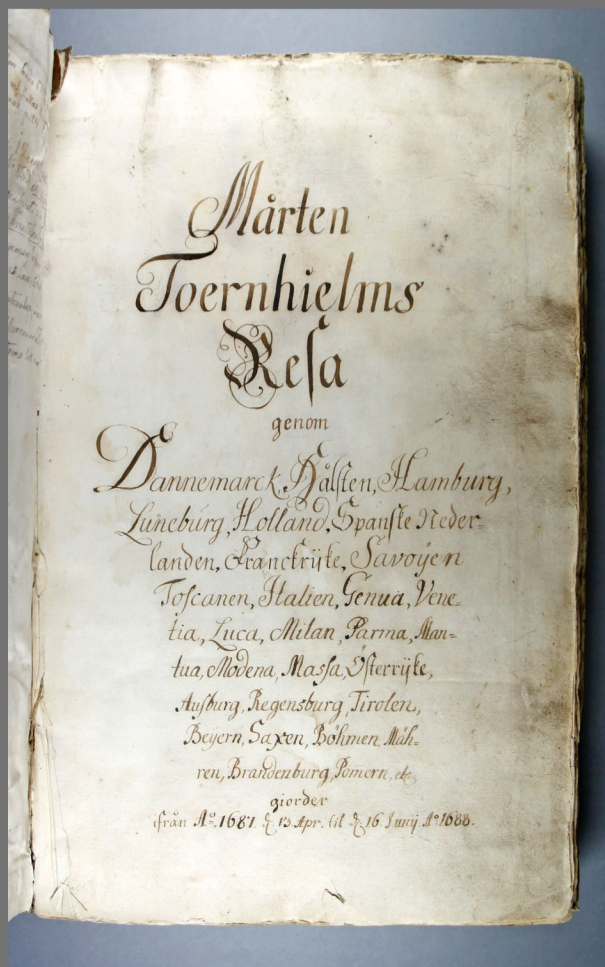 Mårten
Toernhielms
Resa
genom
Dannemarck, Hålsten, Hamburg,
Lüneburg, Holland, Spanske Neder-
landen, Franckrÿke, Savoÿen
Toscanen, Italien, Genua, Vene-
tia, Luca, Milan, Parma, Man-
tua, Modena, Massa, Österrijke,
Ausburg, Regensburg, Tirolen,
Beÿern, Saxen, Böhmen, Mäh-
ren, Brandenburg, Pomern. etc
giorder
ifrån Aº. 1687 d. 13. Apr. til d. 16 Junij Aº 1688.